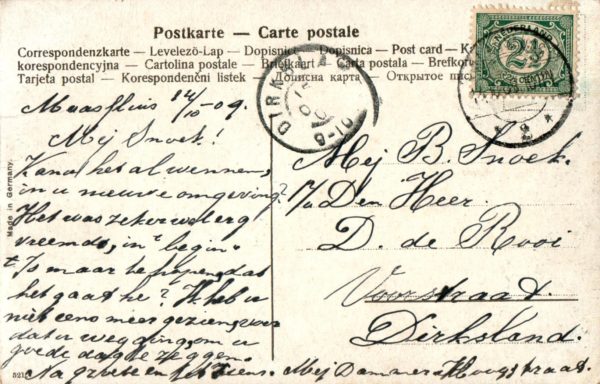 Postkarte — Carte postale
Correspondenzkarte — Levelező-Lap — Dopisnice — Dopisnica — Post card —
korespondencyjna — Cartolina postale — Briefkaart — Carta postala — Brefkort
Tarjeta postal — Korespondenční listek — Дописна карта — Открытое
NEDERLAND
2½
CENT
DIRKSLAND
2
Made in Germany.
Maassluis 14/10-09.
Mej Snoek!
Kan u het al wennen,
in u nieuwe omgeving?
Het was zeker wel erg
vreemd, in 't begin.
't Is maar te hopen, dat
het gaat he? Ik heb u
niet eens meer gezien, voor
dat u weg ging, om u
goede dag te zeggen.
Na groete en tot ziens. Mej Dammers Hoogstraat.
Mej B. Snoek.
Den Heer
D. de Rooi
Voorstraat.
Dirksland.
521